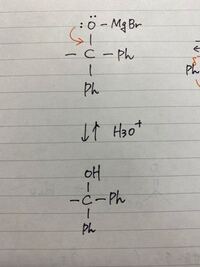 :Ö - MgBr
- C - Ph
Ph
Ph
↓↑ H3O+
OH
- C - Ph
Ph